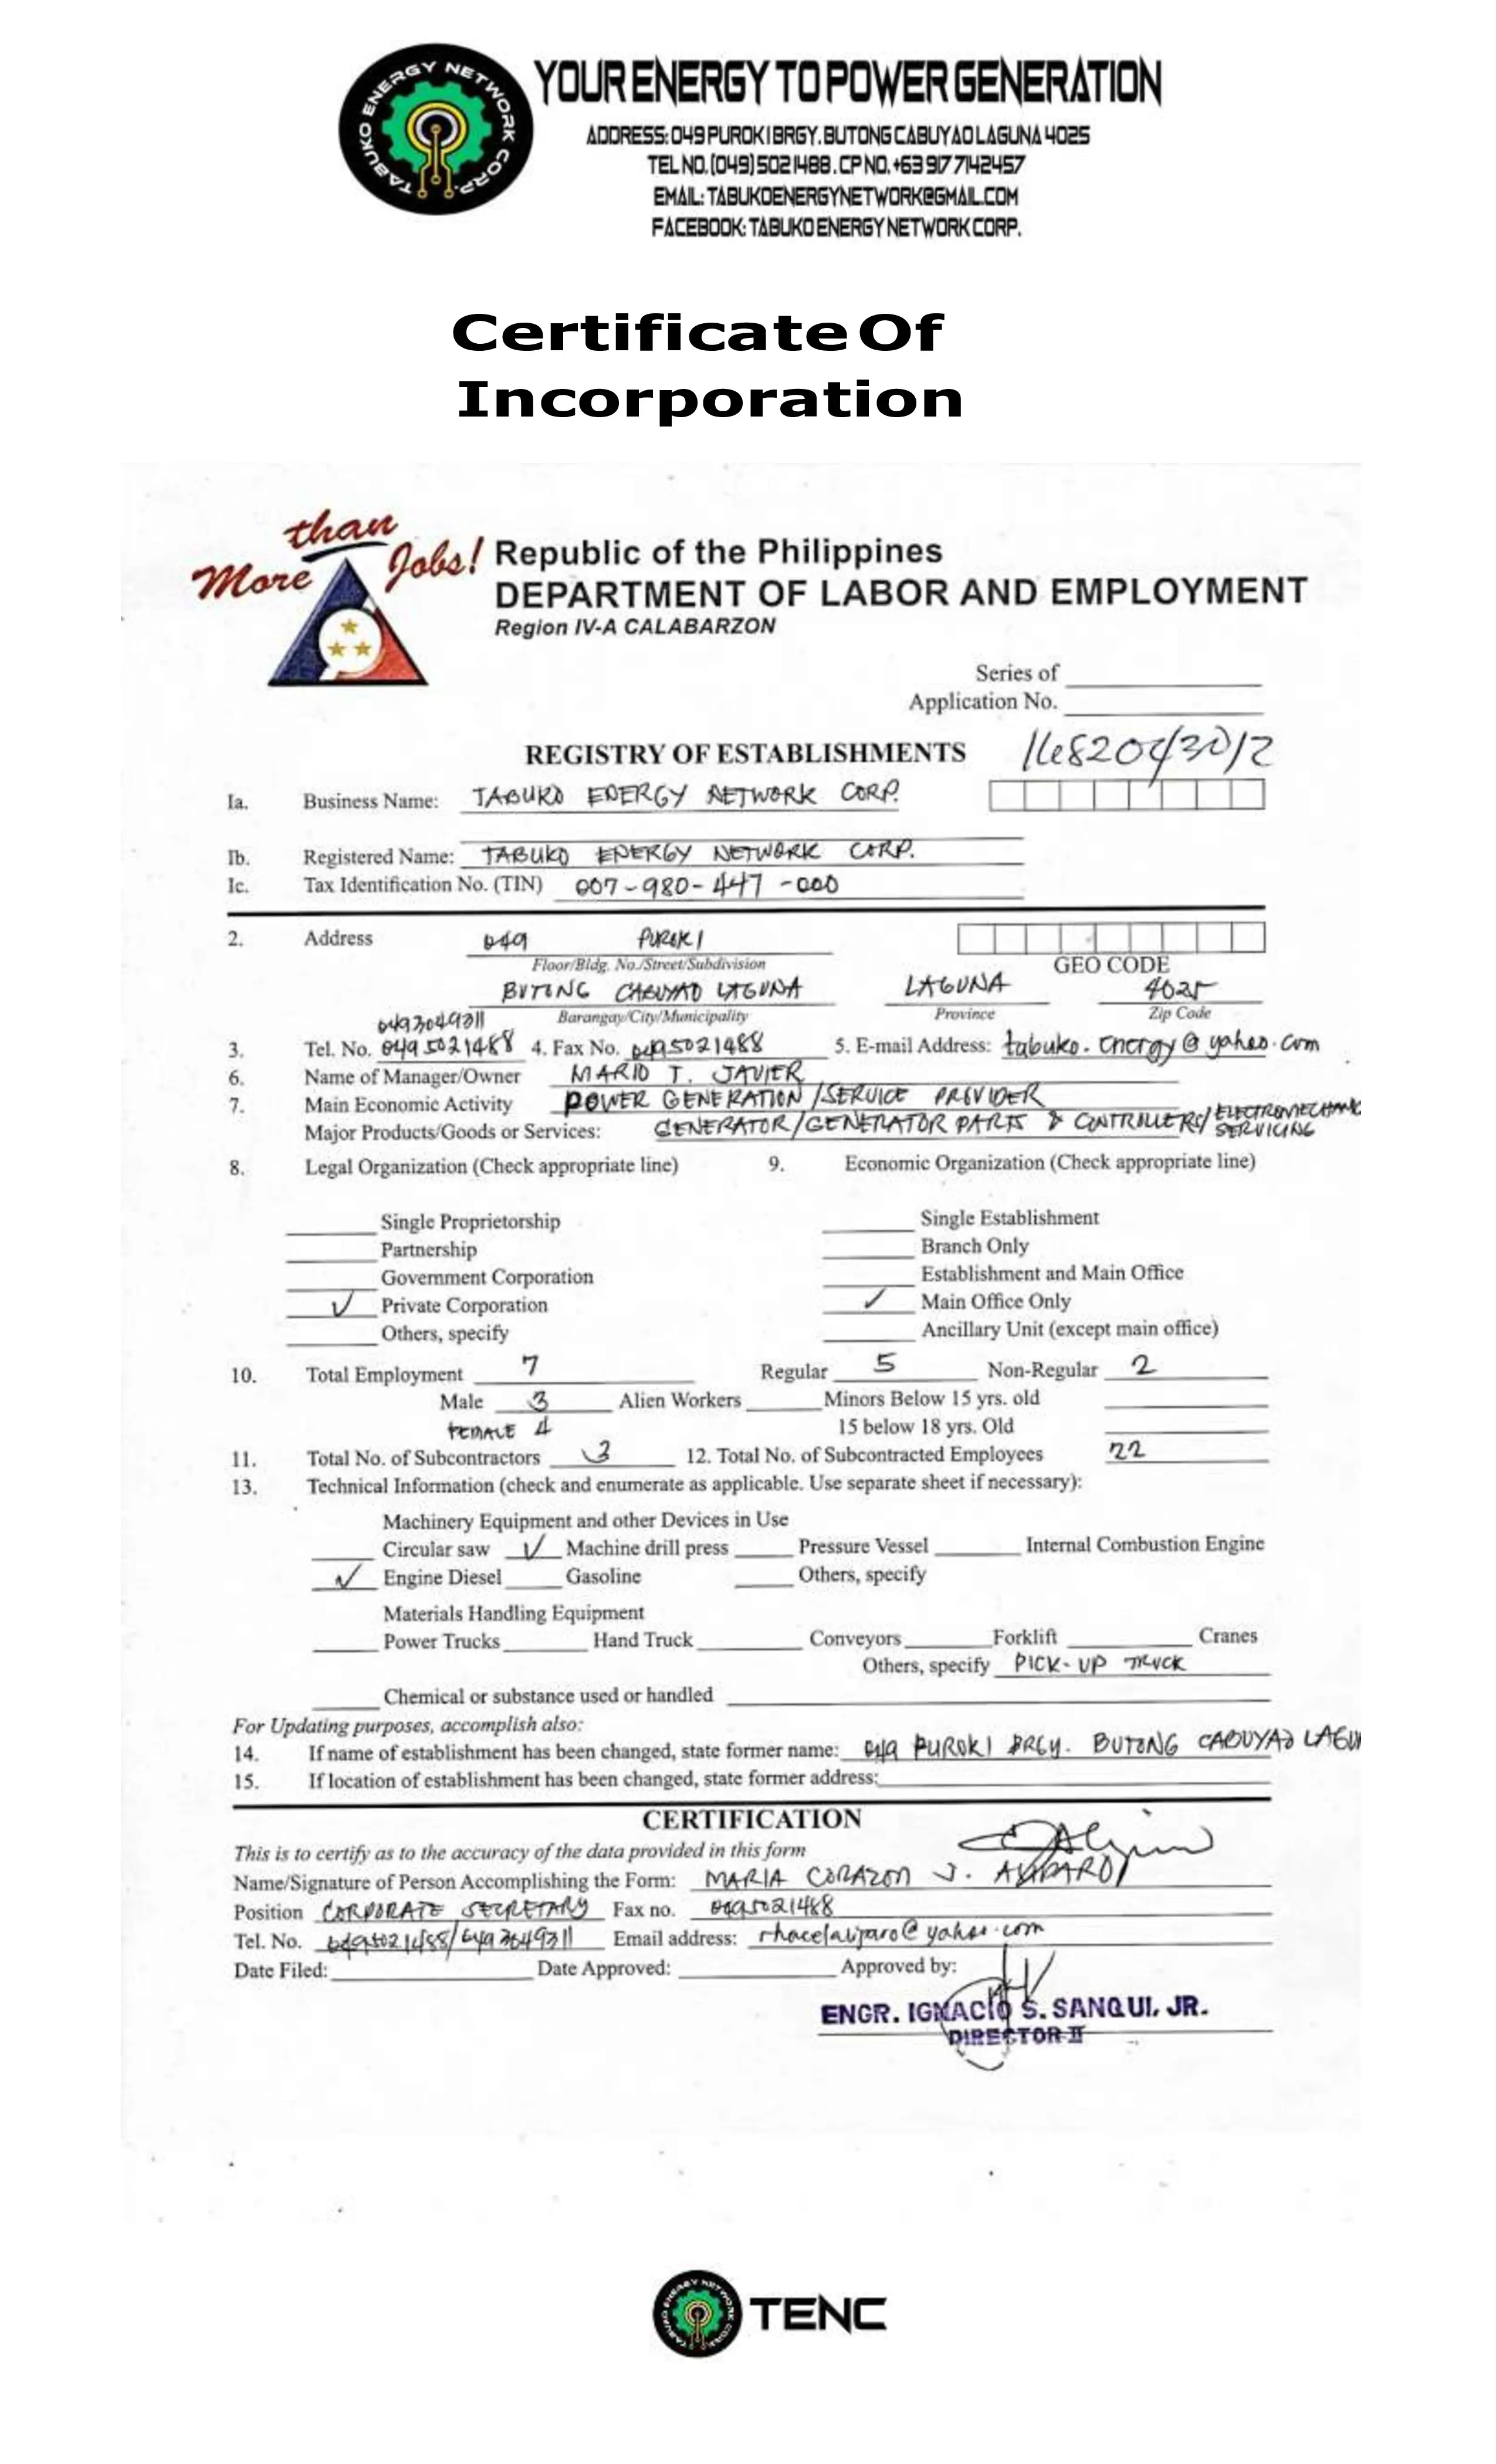 TABUKO ENERGY NETWORK CORP.
YOUR ENERGY TO POWER GENERATION
ADDRESS: 049 PUROK I BRGY. BUTONG CABUYAO LAGUNA 4025
TEL NO. (049) 502 1488 . CP NO. +63 917 7142457
EMAIL: TABUKOENERGYNETWORK@GMAIL.COM
FACEBOOK: TABUKO ENERGY NETWORK CORP.
Certificate Of
Incorporation
More than Jobs!
Republic of the Philippines
DEPARTMENT OF LABOR AND EMPLOYMENT
Region IV-A CALABARZON
Series of
Application No.
REGISTRY OF ESTABLISHMENTS
Ia. Business Name: TABUKO ENERGY NETWORK CORP.
Ib. Registered Name: TABUKO ENERGY NETWORK CORP.
Ic. Tax Identification No. (TIN) 007-980-447-000
2. Address 049 PUROK I
Floor/Bldg. No./Street/Subdivision GEO CODE
BUTONG CABUYAO LAGUNA LAGUNA 4025
Barangay/City/Municipality Province Zip Code
0493049311
3. Tel. No. 0495021488 4. Fax No. 0495021488 5. E-mail Address: tabuko.energy@yahoo.com
6. Name of Manager/Owner MARIO T. JAVIER
7. Main Economic Activity POWER GENERATION/SERVICE PROVIDER
Major Products/Goods or Services: GENERATOR/GENERATOR PARTS & CONTROLLERS/ SERVICING
8. Legal Organization (Check appropriate line) 9. Economic Organization (Check appropriate line)
Single Proprietorship Single Establishment
Partnership Branch Only
Government Corporation Establishment and Main Office
✓ Private Corporation ✓ Main Office Only
Others, specify Ancillary Unit (except main office)
10. Total Employment 7 Regular 5 Non-Regular 2
Male 3 Alien Workers Minors Below 15 yrs. old
FEMALE 4 15 below 18 yrs. Old
11. Total No. of Subcontractors 3 12. Total No. of Subcontracted Employees 22
13. Technical Information (check and enumerate as applicable. Use separate sheet if necessary):
Machinery Equipment and other Devices in Use
Circular saw ✓ Machine drill press Pressure Vessel Internal Combustion Engine
✓ Engine Diesel Gasoline Others, specify
Materials Handling Equipment
Power Trucks Hand Truck Conveyors Forklift Cranes
Others, specify PICK-UP TRUCK
Chemical or substance used or handled
For Updating purposes, accomplish also:
14. If name of establishment has been changed, state former name: 049 PUROK I BRGY. BUTONG CABUYAO
15. If location of establishment has been changed, state former address:
CERTIFICATION
This is to certify as to the accuracy of the data provided in this form
Name/Signature of Person Accomplishing the Form: MARIA CORAZON J.
Position CORPORATE SECRETARY Fax no. 0495021488
Tel. No. 0495021488/0493049311 Email address:
Date Filed: Date Approved: Approved by:
ENGR. IGNACIO S. SANQUI, JR.
DIRECTOR II
TABUKO ENERGY NETWORK CORP.
TENC